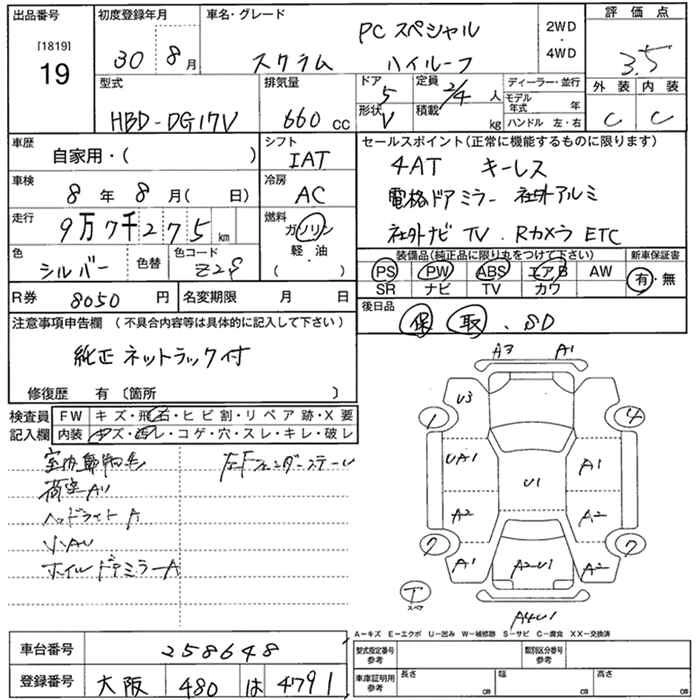 出品番号 初度登録年月 車名・グレード 評価点
[1819]
19
30 8月 スクラム PCスペシャル ハイルーフ 2WD・4WD 3.5
外装 内装
C C
型式 排気量 ドア 定員 ディーラー・並行
HBD-DG17V 660 cc 5 2/4 人
形状 V 積載 kg
モデル年式 年
ハンドル 左・右
車歴 シフト セールスポイント(正常に機能するものに限ります)
自家用・( ) IAT
4AT キーレス
車検 冷房
8年8月( 日) AC
電格ドアミラー 社外アルミ
走行 燃料
9万7千275 km ガソリン 軽油 ( )
社外ナビ TV . Rカメラ ETC
色 色替 色コード
シルバー Z2S
装備品(純正品に限り丸をつけて下さい) 新車保証書
PS PW ABS エアB AW 有・無
SR ナビ TV カワ
R券 8050 円 名変期限 月 日
後日品
保 取 . SD
注意事項申告欄 (不具合内容等は具体的に記入して下さい)
純正ネットラック付
修復歴 有 〔箇所 〕
検査員 FW キズ・飛石・ヒビ割・リペア跡・X要
記入欄 内装 キズ・汚レ・コゲ・穴・スレ・キレ・破レ
左Fフェンダーステー
ヘッドライト A
ホイル ドアミラーA
A3 A1
U3
1 4
UA1 U1 A1
A2 A2
7 7
A1 A2U1 A2
T
スペア
A4U1
A－キズ E－エクボ U－凹み W－補修跡 S－サビ C－腐食 XX－交換済
車台番号 258648
型式指定番号 参考 類別区分番号 参考
登録番号 大阪 480 は 4791
車庫証明用 参考 長さ cm 幅 cm 高さ cm